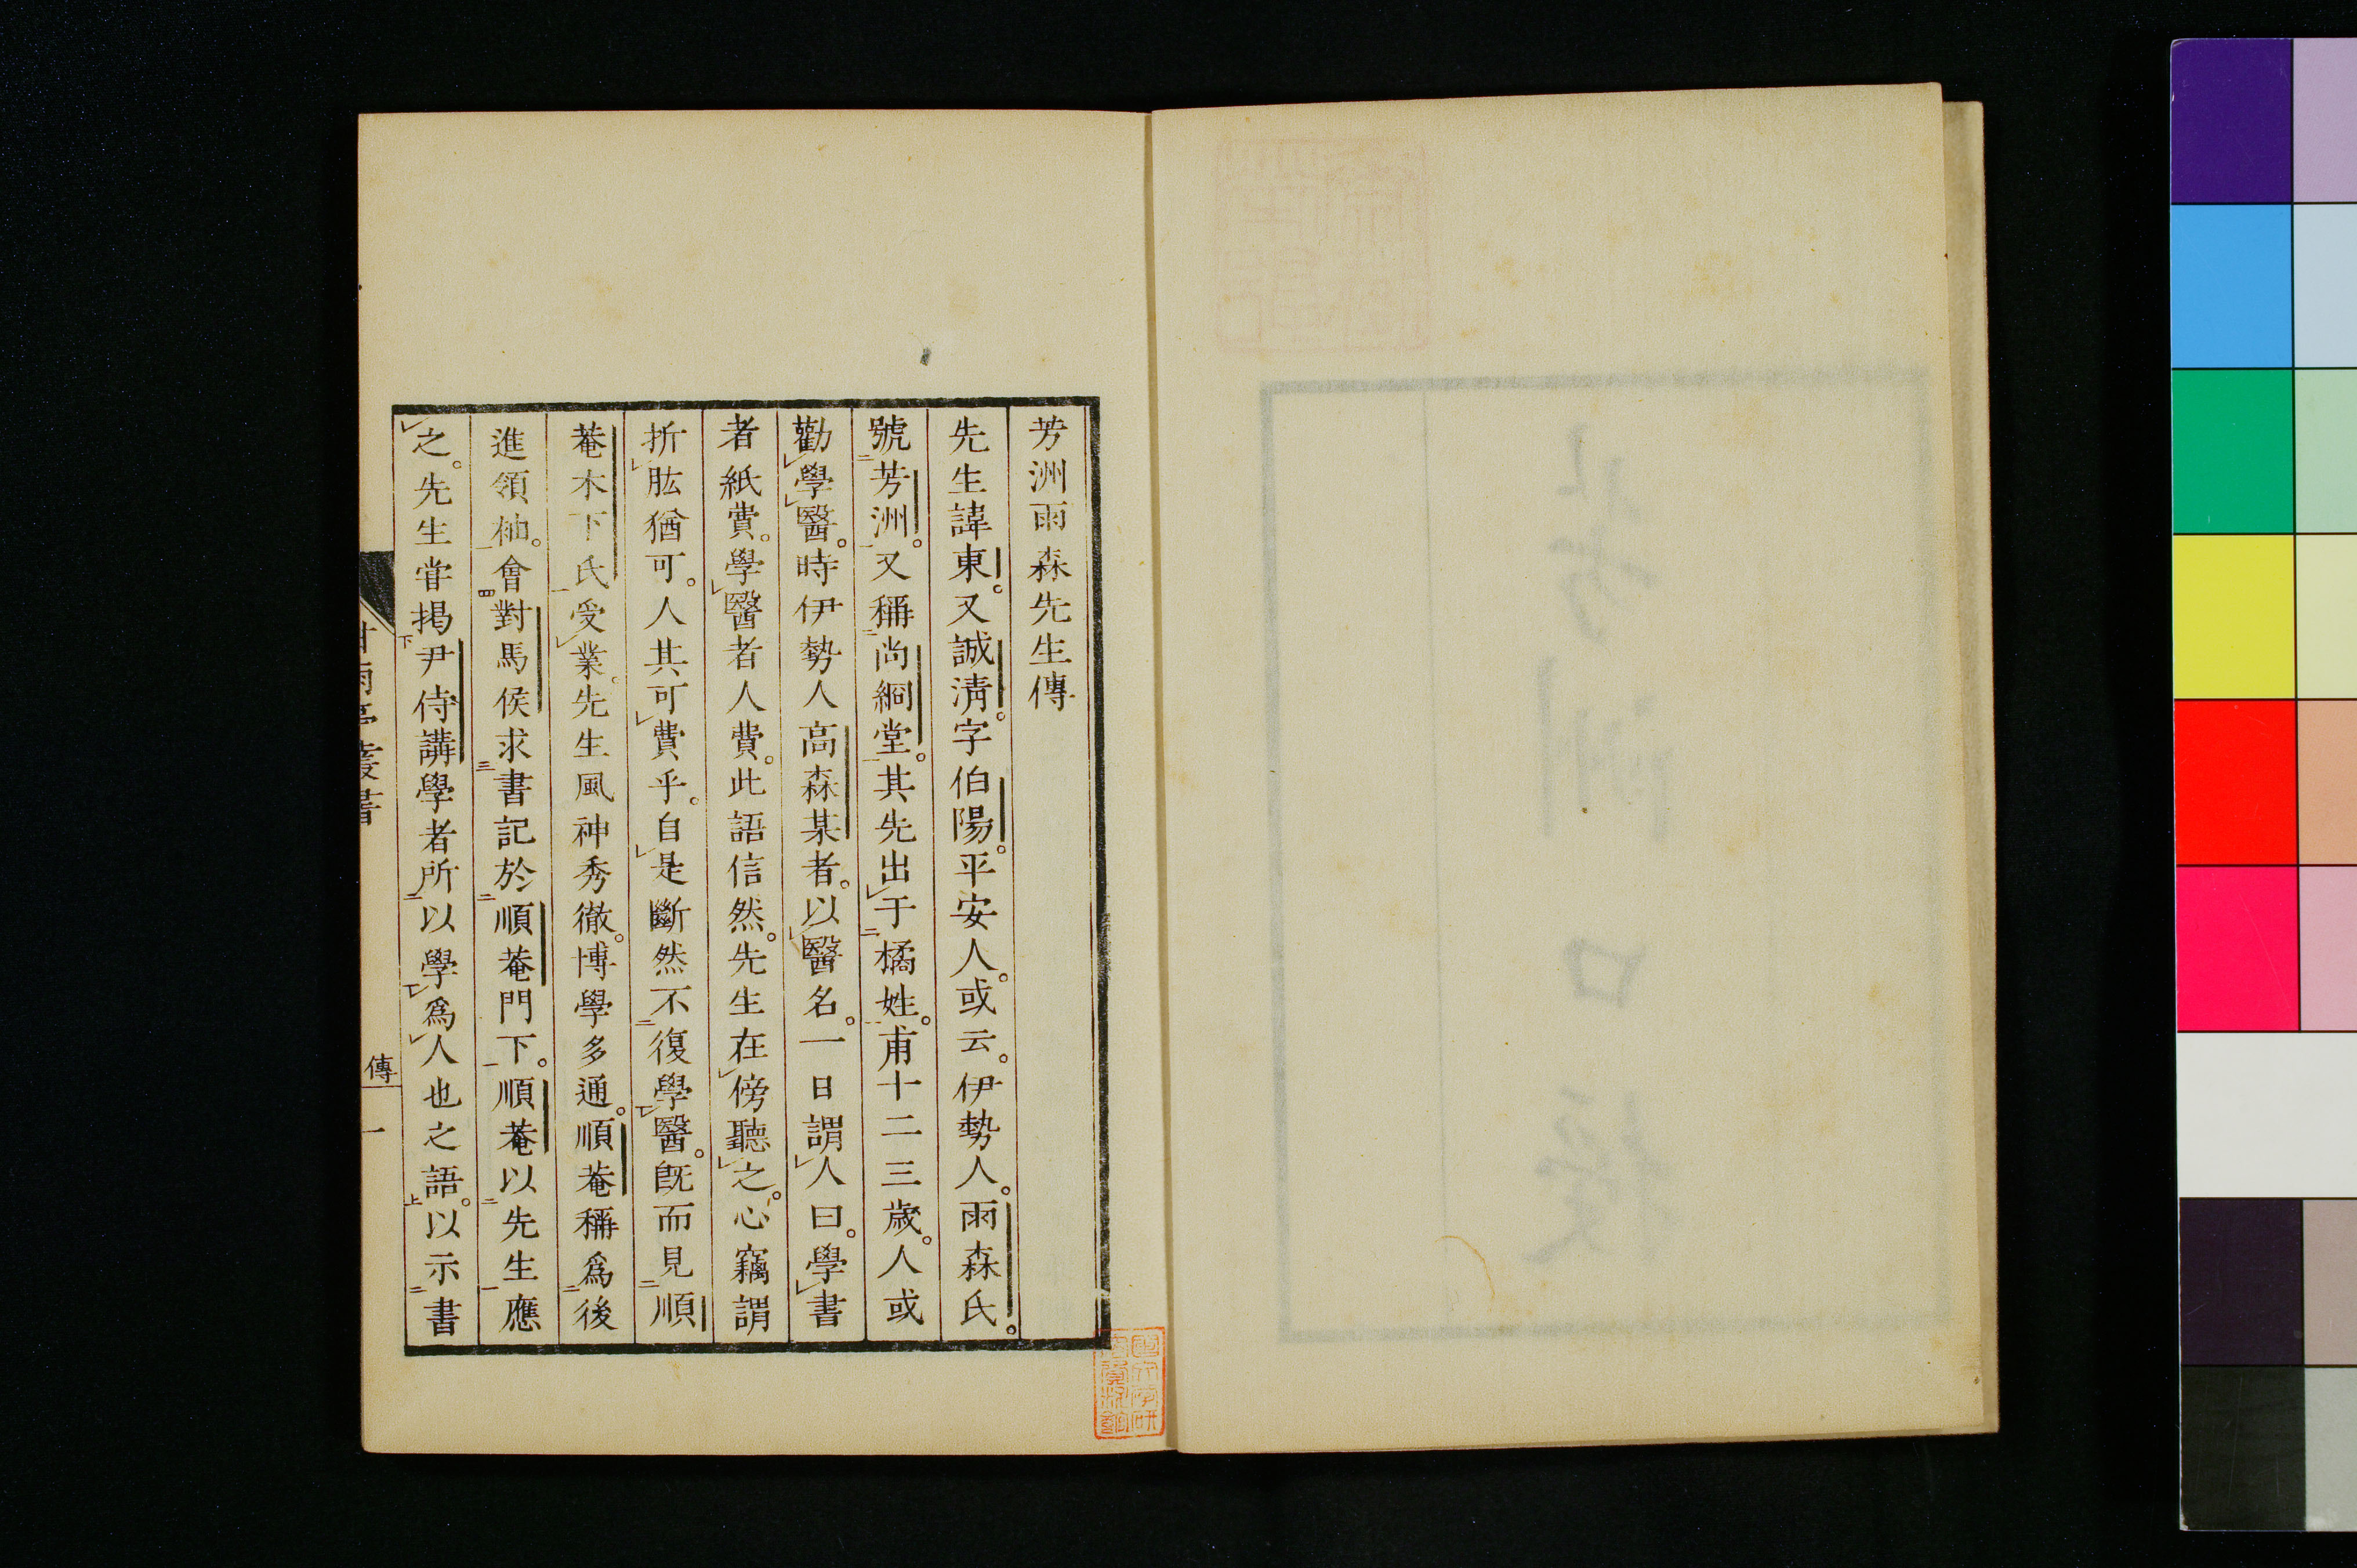 芳洲雨森先生傳
先生諱東。又誠淸。字伯陽。平安人。或云。伊勢人。雨森氏。
號芳洲。又稱尚絅堂。其先出于橘姓。甫十二三歲。人或
勸學醫。時伊勢人高森某者。以醫名。一日謂人曰。學書
者紙費。學醫者人費。此語信然。先生在傍聽之。心竊謂
折肱猶可。人其可費乎。自是斷然不復學醫。旣而見順
菴木下氏受業。先生風神秀徹。博學多通。順菴稱爲後
進領袖。會對馬侯求書記於順菴門下。順菴以先生應
之。先生甞揭尹侍講學者所以學爲人也之語。以示書
傳
一